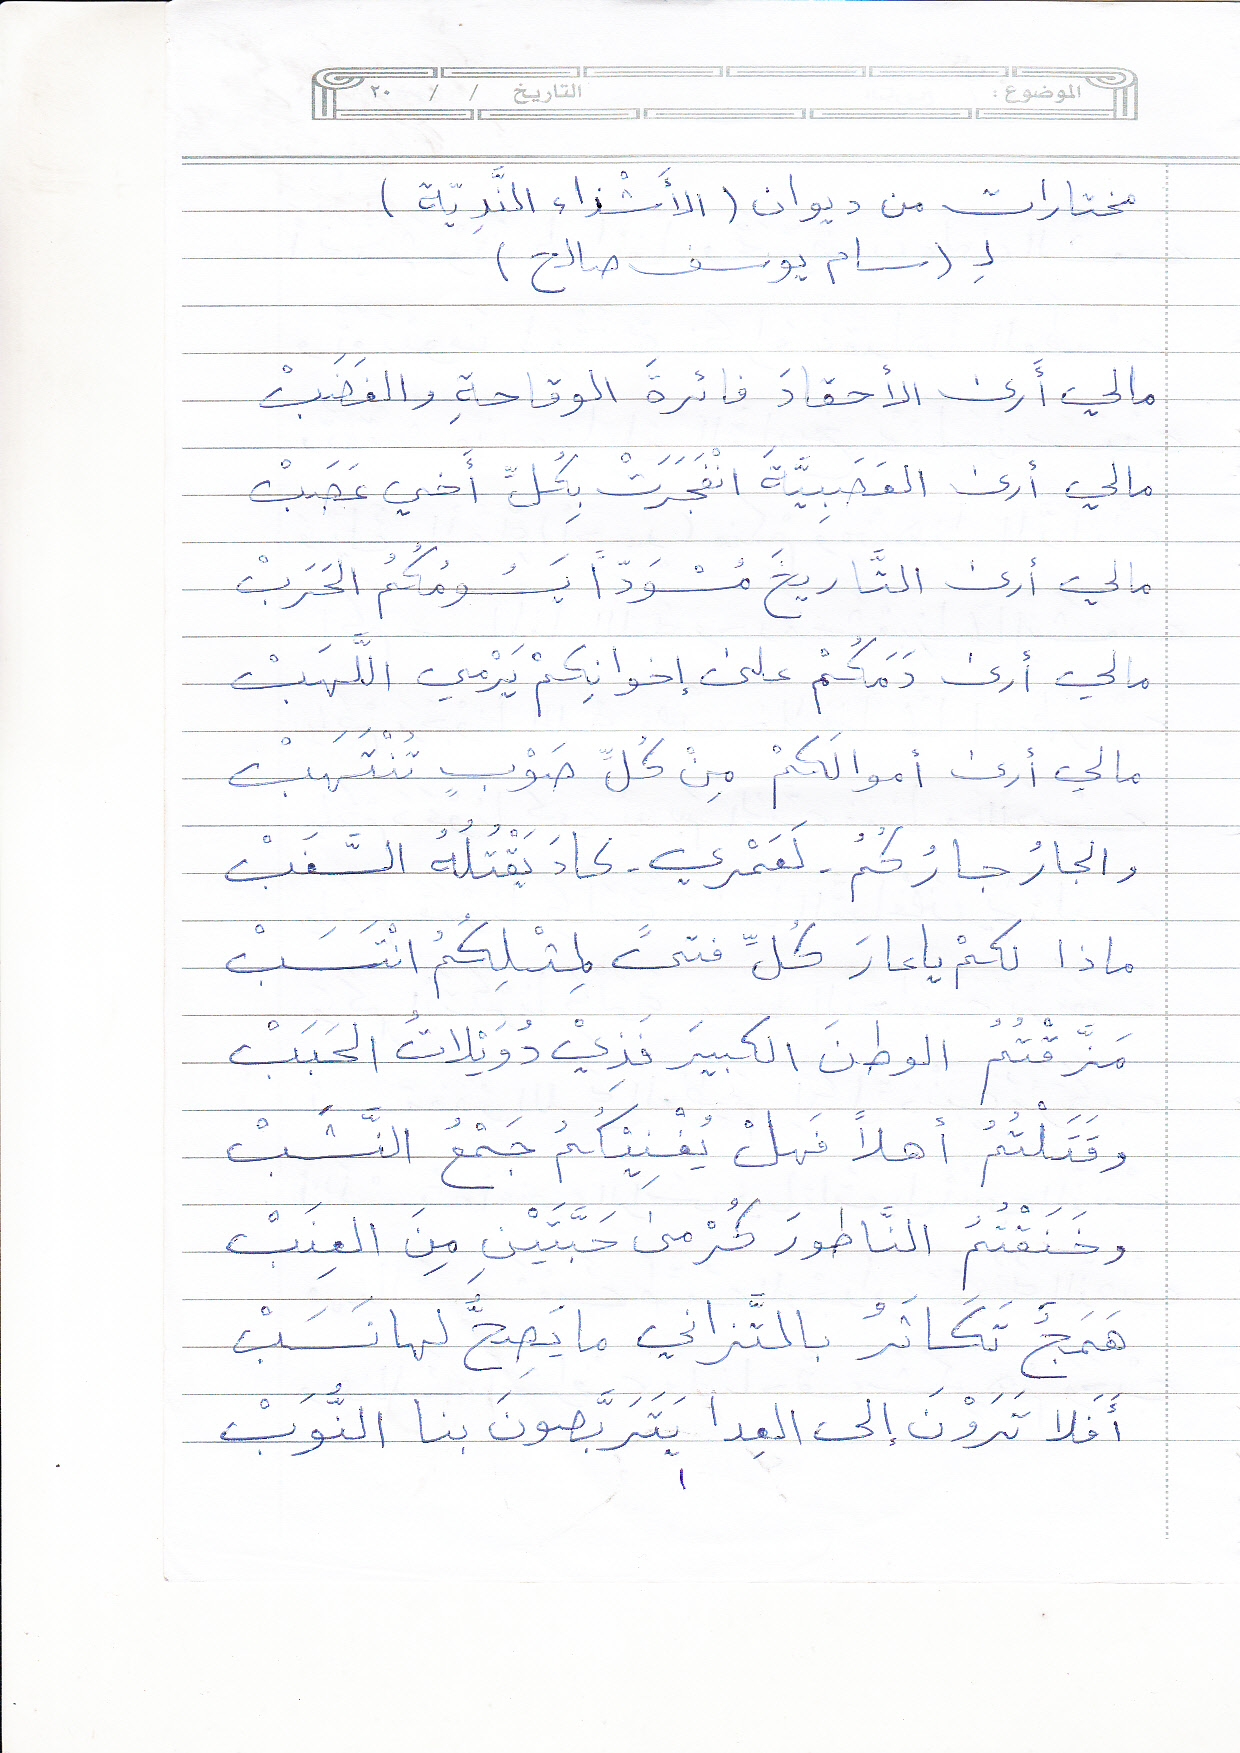 الموضوع : التاريخ / / ٢٠
مختارات من ديوان ( الأَشْذاء النَّدِيّة )
لِ ( سام يوسف صالح )
مالي أَرىٰ الأحقادَ فائرةَ الوقاحةِ والغَضَبْ
مالي أرىٰ العَصَبِيَّةَ انْفَجَرَتْ بِكُلِّ أَخي عَصَبْ
مالي أرىٰ التَّاريخَ مُسْوَدّاً يَسُومُكُمُ الحَرَبْ
مالي أرىٰ دَمَكُمْ علىٰ إخوانِكِمْ يَرْمي اللَّهَبْ
مالي أرىٰ أموالَكمْ مِنْ كُلِّ صَوْبٍ تُنْتَهَبْ
والجارُ جارُكُمُ - لَعَمْري - كادَ يَقْتُلُهُ السَّغَبْ
ماذا لكمْ ياعارَ كُلِّ فتىً لِمِثْلِكُمُ انْتَسَبْ
مَزَّقْتُمُ الوطنَ الكبيرَ فَذِيْ دُوَيْلاتُ الحَبَبْ
وقَتَلْتُمُ أهلاً فَهلْ يُغْنِيْكُمُ جَمْعُ النَّشَبْ
وخَنَقْتُمُ النَّاطورَ كُرْمىٰ حَبَّتَيْنِ مِنَ العِنَبْ
هَمَجٌ تَكَاثَرُ بالتَّزاني ما يَصِحُّ لها نَسَبْ
أَفَلا تَرَوْنَ إلى العِدا يَتَرَبَّصونَ بنا النُّوَبْ
١